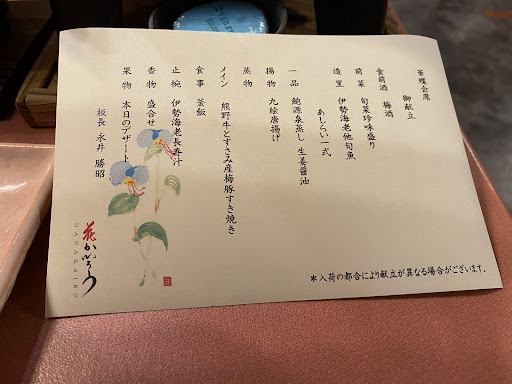 華蝶会席
御献立
食前酒 梅酒
前菜 旬菜珍味盛り
造里 伊勢海老他旬魚
あしらい一式
一品 鮑源泉蒸し 生姜醤油
揚物 九絵唐揚げ
蒸物
メイン 熊野牛とすさみ産梅豚すき焼き
食事 釜飯
止椀 伊勢海老長寿汁
香物 盛合せ
果物 本日のデザート
板長 永井 勝昭
花かいろう
HANAKAIRO
*入荷の都合により献立が異なる場合がございます。